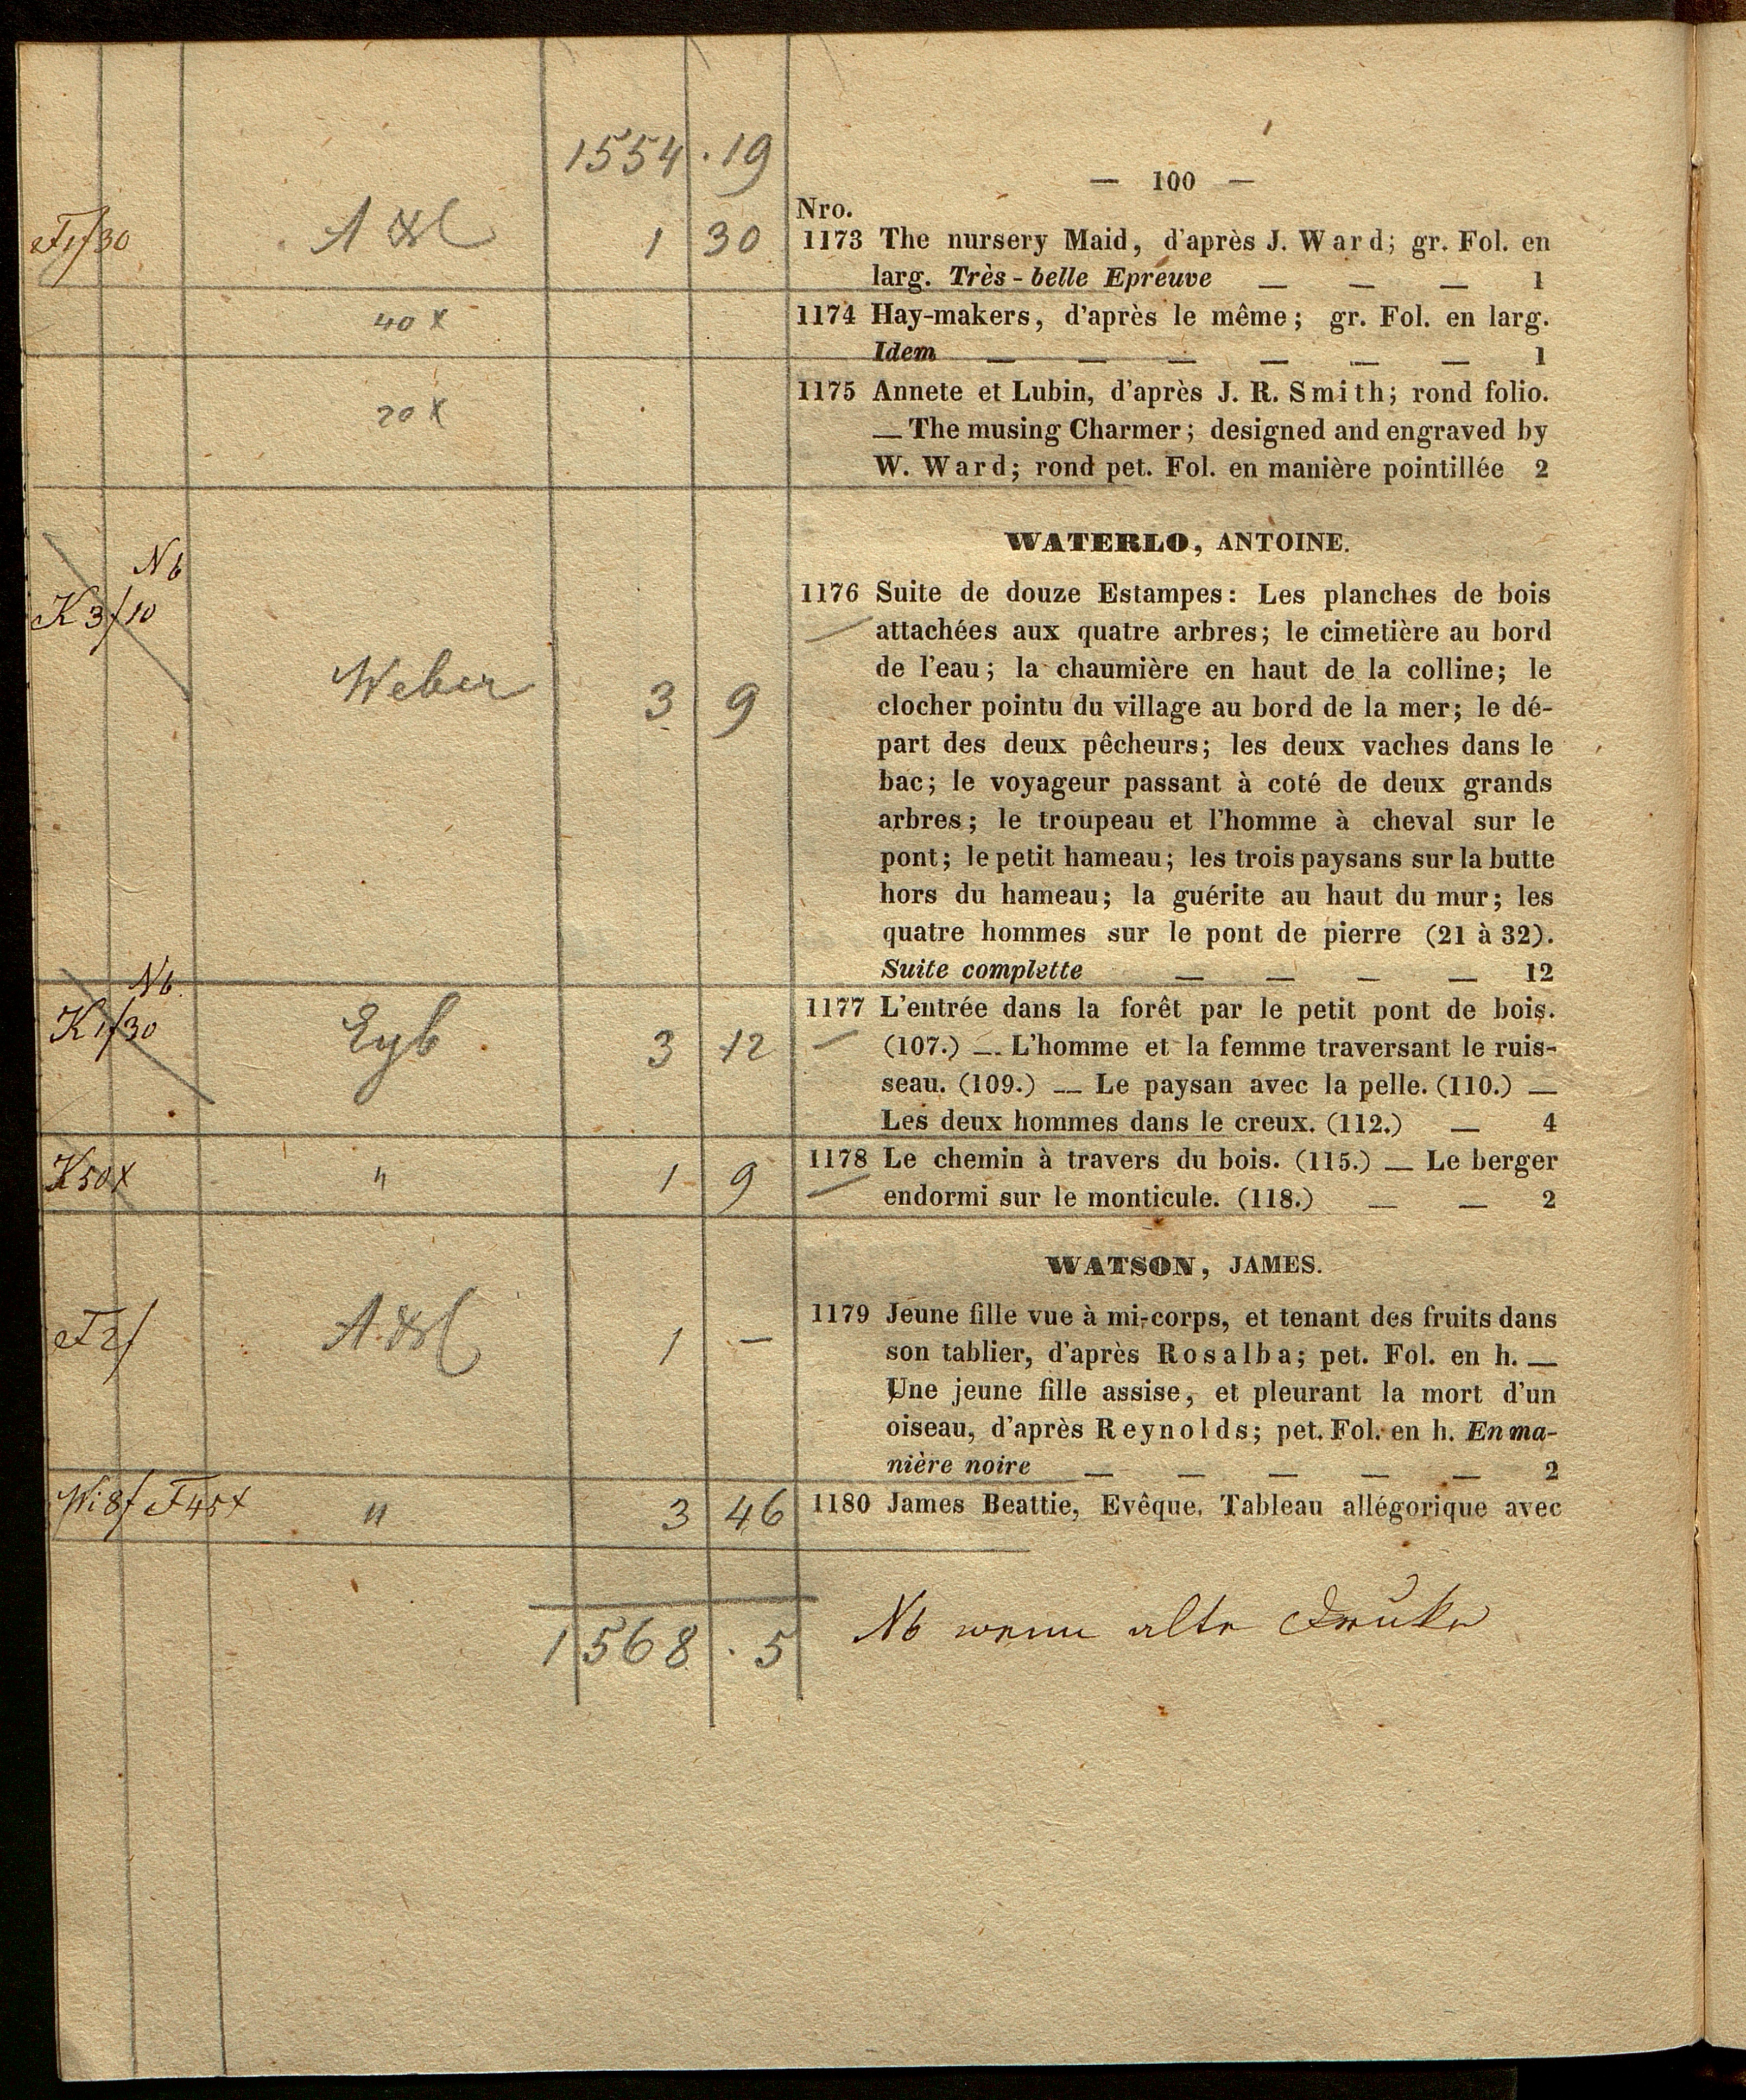 1554 . 19
— 100 —
Nro.
F 1f 30 1 30 1173 The nursery Maid, d'après J. Ward; gr. Fol. en
larg. Très-belle Epreuve — — — 1
40 x 1174 Hay-makers, d'après le même; gr. Fol. en larg.
Idem — — — — — — 1
20 x 1175 Annete et Lubin, d'après J. R. Smith; rond folio.
— The musing Charmer; designed and engraved by
W. Ward; rond pet. Fol. en manière pointillée 2
WATERLO, ANTOINE.
Nb
K 3f 10 Weber 3 9 1176 Suite de douze Estampes: Les planches de bois
attachées aux quatre arbres; le cimetière au bord
de l'eau; la chaumière en haut de la colline; le
clocher pointu du village au bord de la mer; le dé-
part des deux pêcheurs; les deux vaches dans le
bac; le voyageur passant à coté de deux grands
arbres; le troupeau et l'homme à cheval sur le
pont; le petit hameau; les trois paysans sur la butte
hors du hameau; la guérite au haut du mur; les
quatre hommes sur le pont de pierre (21 à 32).
Suite complette — — — — 12
Nb.
K 1f 30 Eyb. 3 12 1177 L'entrée dans la forêt par le petit pont de bois.
(107.) — L'homme et la femme traversant le ruis-
seau. (109.) — Le paysan avec la pelle. (110.) —
Les deux hommes dans le creux. (112.) — 4
K 50 x " 1 9 1178 Le chemin à travers du bois. (115.) — Le berger
endormi sur le monticule. (118.) — — 2
WATSON, JAMES.
F 2f 1 — 1179 Jeune fille vue à mi-corps, et tenant des fruits dans
son tablier, d'après Rosalba; pet. Fol. en h. —
Une jeune fille assise, et pleurant la mort d'un
oiseau, d'après Reynolds; pet. Fol. en h. En ma-
nière noire — — — — — 2
Wi 8f F 45 x " 3 46 1180 James Beattie, Evêque, Tableau allégorique avec
1568 . 5
Nb wenn alte Druke